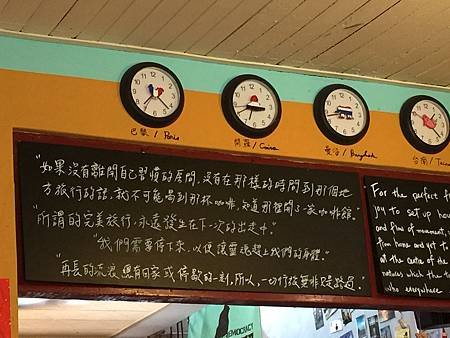 巴黎 / Paris
開羅 / Cairo
曼谷 / Bangkok
台南 / Taina
"如果沒有離開自己習慣的房間,沒有在那樣的時間到那個地
方旅行的話,就不可能喝到那杯咖啡,知道那裡開了一家咖啡館。"
"所謂的完美旅行,永遠發生在下一次的出走中。"
"我們需要停下來,以便讓靈魂趕上我們的身體。"
"再長的流浪,總有回家或停歇的一刻,所以,一切行旅無非只是路過。"
For the perfect
joy to set up hous
and flow of movement,
from home and yet to
at the centre of the
natures which the
who everywhere
DEMOCRACY